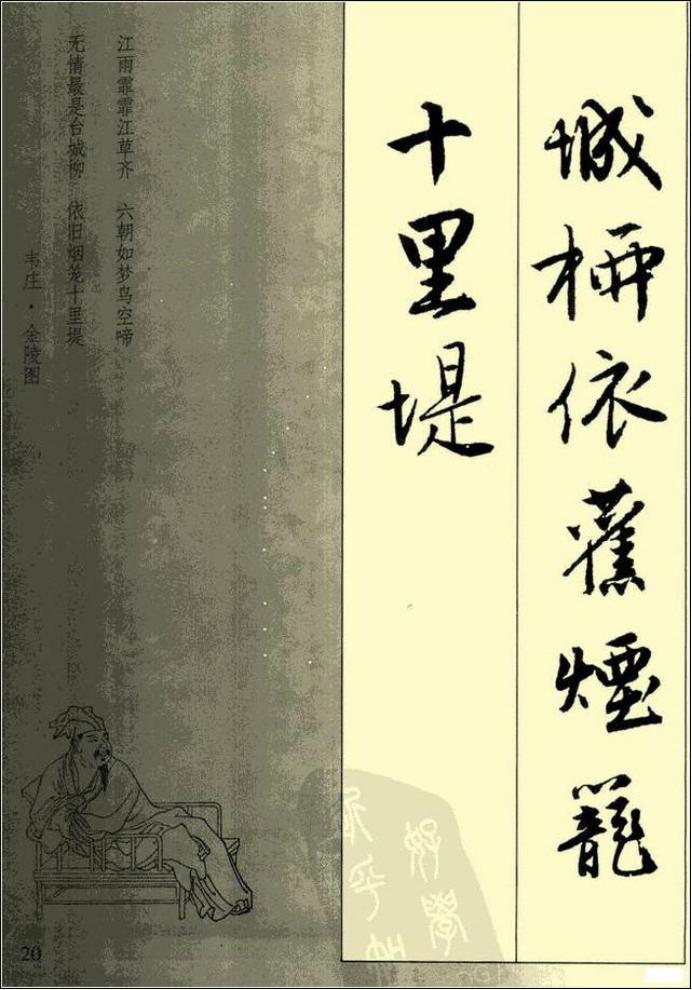 城柳依舊煙籠
十里堤
江雨霏霏江草齐　六朝如梦鸟空啼
无情最是台城柳　依旧烟笼十里堤
韦庄·金陵图
好學
20